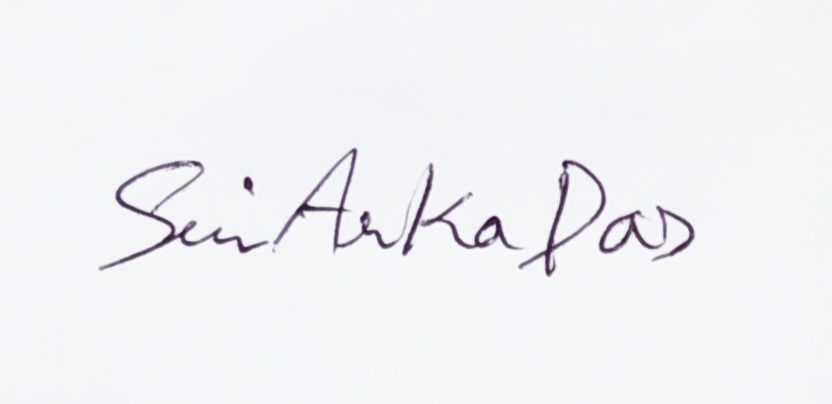 Sri Arka Das